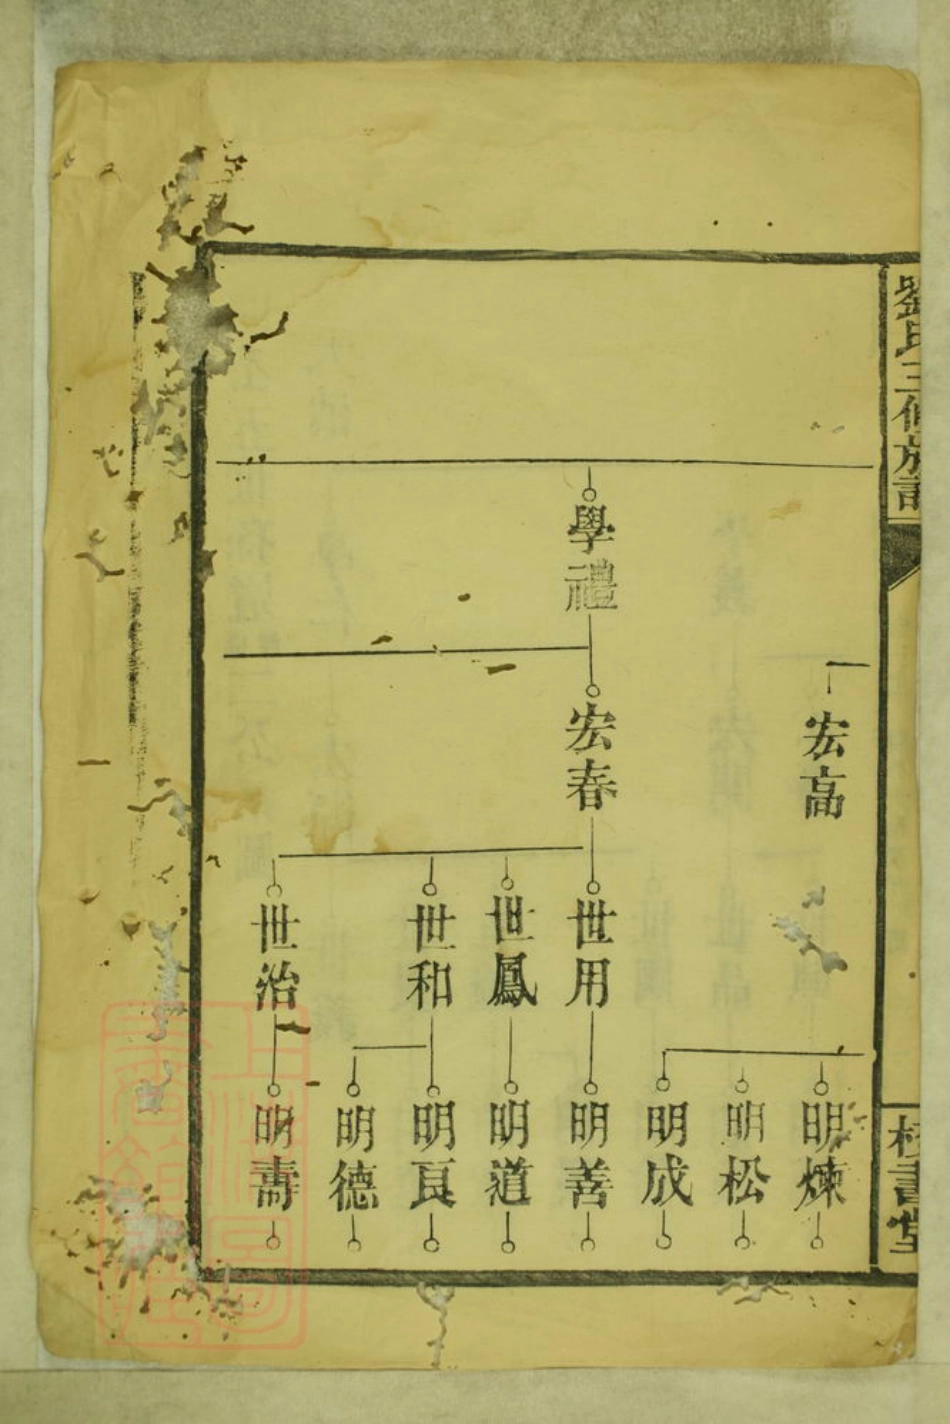 劉氏三修族譜
校書堂
學禮
宏高
宏春
世用
世鳳
世和
世治
明煉
明松
明成
明善
明道
明良
明德
明壽